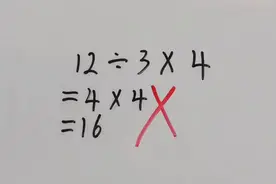 12÷3×4
=4×4
=16